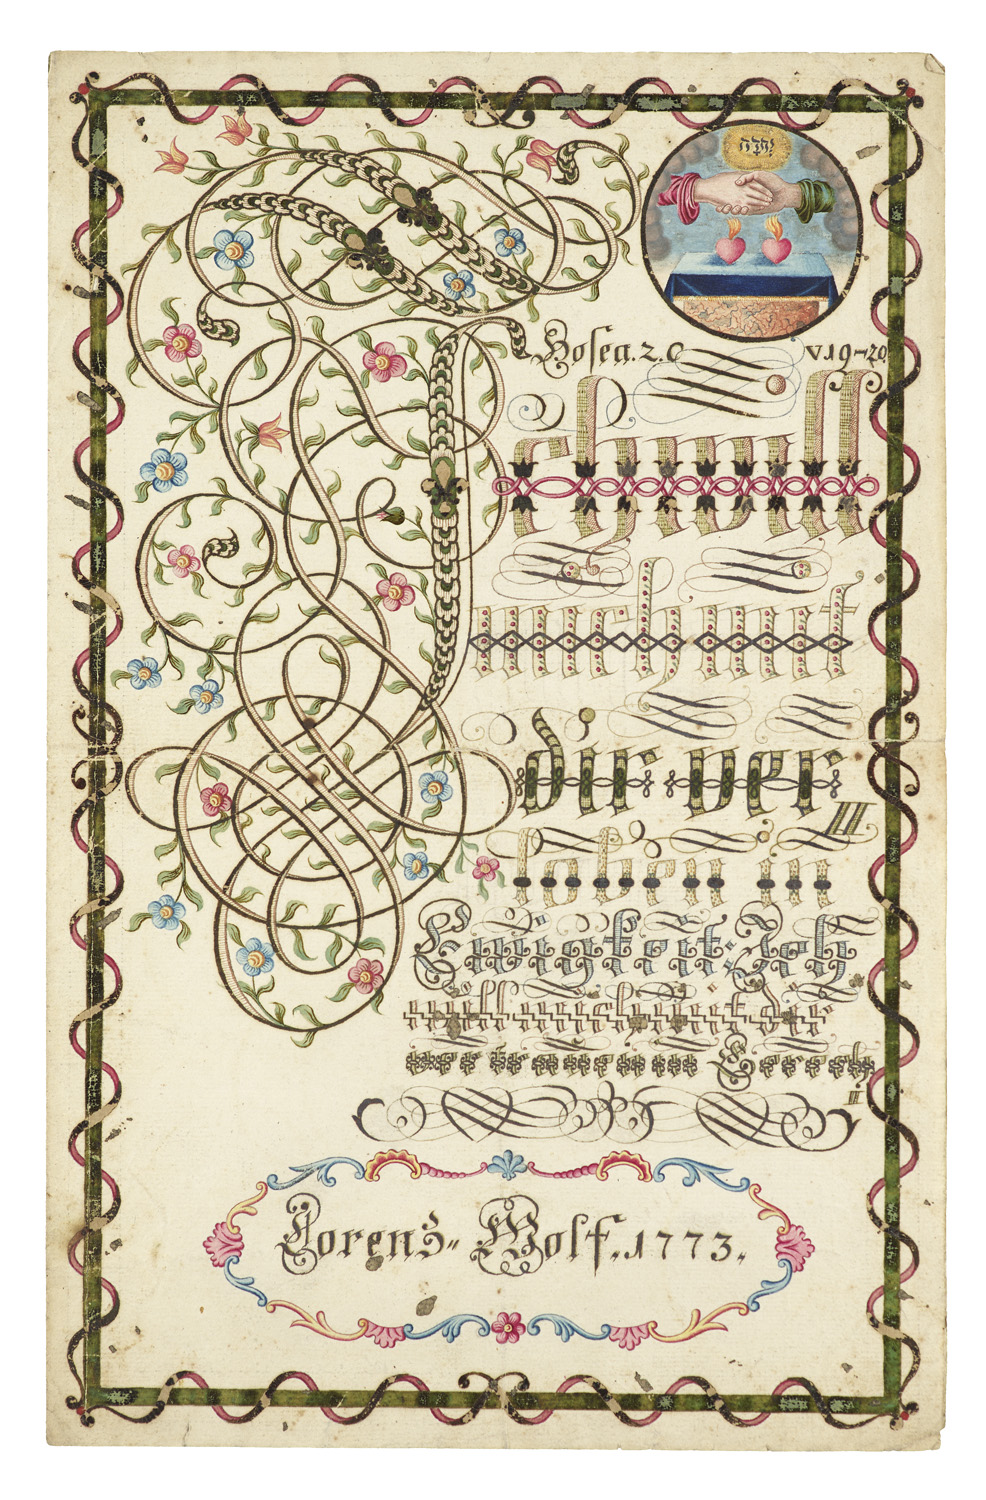 יהוה
Hosea. 2. C v. 19-20
Ich will
mich mit
dir ver=
loben in
Ewigkeit: Ich
will mich mit Dir
Gerech=
Lorenß= Wolf. 1773.